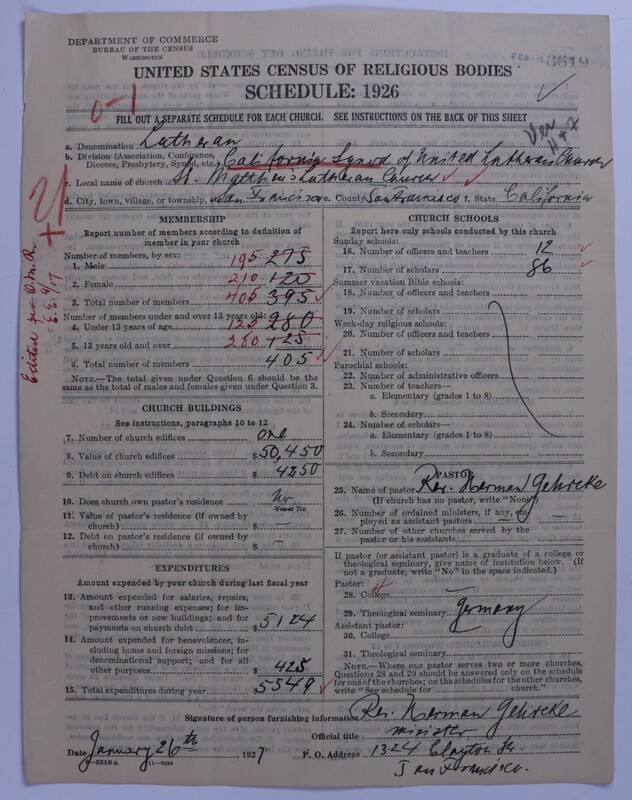 DEPARTMENT OF COMMERCE
BUREAU OF THE CENSUS
WASHINGTON
FEB 3619
UNITED STATES CENSUS OF RELIGIOUS BODIES
SCHEDULE: 1926
0-1
FILL OUT A SEPARATE SCHEDULE FOR EACH CHURCH. SEE INSTRUCTIONS ON THE BACK OF THIS SHEET
a. Denomination Lutheran
b. Division (Association, Conference, Diocese, Presbytery, Synod, etc.) California Synod of United Lutheran Church
c. Local name of church St. Matthew's Lutheran Church
d. City, town, village, or township San Francisco e. County San Francisco f. State California
MEMBERSHIP
Report number of members according to definition of
member in your church
Number of members, by sex:
1. Male 195 275
2. Female 210 120
3. Total number of members 405 395
Number of members under and over 13 years old:
4. Under 13 years of age 125 280
5. 13 years old and over 280 125
6. Total number of members 405
NOTE.—The total given under Question 6 should be the
same as the total of males and females given under Question 3.
CHURCH BUILDINGS
See instructions, paragraphs 10 to 12
7. Number of church edifices one
8. Value of church edifices $50,450
9. Debt on church edifices $4250
10. Does church own pastor's residence No
Yes or No
11. Value of pastor's residence (if owned by
church) $ —
12. Debt on pastor's residence (if owned by
church) $ —
EXPENDITURES
Amount expended by your church during last fiscal year
13. Amount expended for salaries, repairs,
and other running expenses; for im-
provements or new buildings; and for
payments on church debt $5124
14. Amount expended for benevolences, in-
cluding home and foreign missions; for
denominational support; and for all
other purposes $425
15. Total expenditures during year $5549
CHURCH SCHOOLS
Report here only schools conducted by this church
Sunday schools:
16. Number of officers and teachers 12
17. Number of scholars 86
Summer vacation Bible schools:
18. Number of officers and teachers
19. Number of scholars
Week-day religious schools:
20. Number of officers and teachers
21. Number of scholars
Parochial schools:
22. Number of administrative officers
23. Number of teachers—
a. Elementary (grades 1 to 8)
b. Secondary
24. Number of scholars—
a. Elementary (grades 1 to 8)
b. Secondary
PASTOR
25. Name of pastor Rev. Herman Gehrcke
(If church has no pastor, write "None")
26. Number of ordained ministers, if any, em-
ployed as assistant pastors —
27. Number of other churches served by the
pastor or his assistants —
If pastor (or assistant pastor) is a graduate of a college or
theological seminary, give name of institution below. (If
not a graduate, write "No" in the space indicated.)
Pastor:
28. College —
29. Theological seminary Germany
Assistant pastor:
30. College
31. Theological seminary
NOTE.—Where one pastor serves two or more churches,
Questions 28 and 29 should be answered only on the schedule
for one of the churches; on the schedules for the other churches,
write "See schedule for church."
Signature of person furnishing information Rev. Herman Gehrcke
Official title minister
Date January 26th, 1927 P. O. Address 1324 Clayton St.
San Francisco.
8-5518a 11-9034